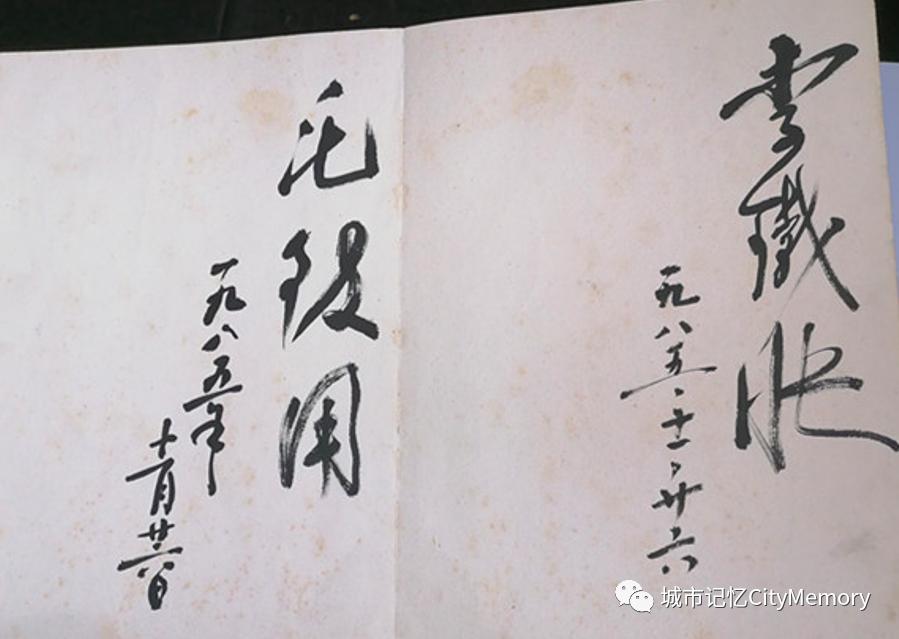 李鐵映
一九八五、十一、廿六
毛致用
一九八五年
十一月廿六日
城市记忆CityMemory